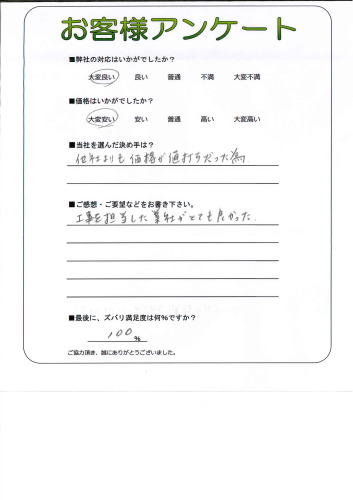 お客様アンケート
■弊社の対応はいかがでしたか？
大変良い 良い 普通 不満 大変不満
■価格はいかがでしたか？
大変安い 安い 普通 高い 大変高い
■当社を選んだ決め手は？
他社よりも価格が値打ちだった為
■ご感想・ご要望などをお書き下さい。
工事を担当した業社がとても良かった.
■最後に、ズバリ満足度は何％ですか？
100%
ご協力頂き、誠にありがとうございました。